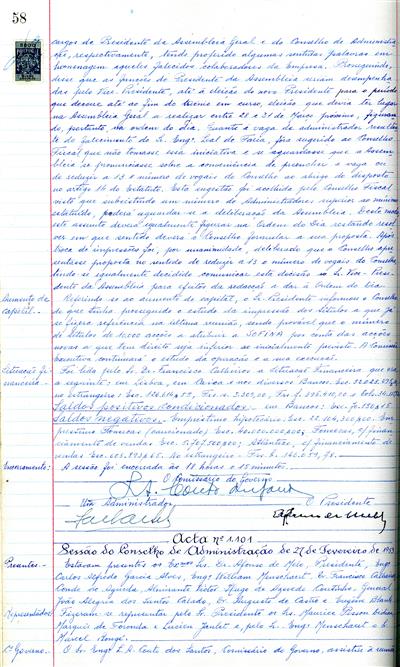 58
cargos de Presidente da Assembleia Geral e do Conselho de Administra-
ção, respectivamente, tendo proferido algumas sentidas palavras em
homenagem aqueles falecidos colaboradores da Empresa. Prosseguindo,
disse que as funções de Presidente da Assembleia seriam desempenha-
das pelo Vice-Presidente, até à eleição do novo Presidente para o período
que decorre até ao fim do triénio em curso, eleição que devia ter lugar
na Assembleia Geral a realizar entre 28 e 31 de Março próximo, figuran-
do, portanto, na ordem do dia. Quanto à vaga de administrador resultan-
te do falecimento do Sr. Eng. Leal de Faria, foi sugerido ao Conselho
Fiscal que não tomasse essa iniciativa e se aguardasse que a Assem-
bleia se pronunciasse sobre a conveniência de preencher a vaga ou
de reduzir a 13 o número de vogais do Conselho ao abrigo do disposto
no artigo 16 do Estatuto. Esta sugestão foi acolhida pelo Conselho Fiscal
visto que subsistindo um número de Administradores superior ao mínimo
estatuído, poderá aguardar-se a deliberação da Assembleia. Deste modo
este assunto deveria igualmente figurar na Ordem do Dia restando resol-
ver em que sentido deverá o Conselho formular a sua proposta. Após
troca de impressões foi, por unanimidade, deliberado que o Conselho apre-
sentasse proposta no sentido de reduzir a 13 o número de vogais do Conselho
tendo-se igualmente decidido comunicar esta decisão ao Sr. Vice-Presi-
dente da Assembleia para efeitos da redacção a dar à Ordem do Dia.
Aumento de
capital.
Referindo-se ao aumento de capital, o Sr. Presidente informou o Conselho
de que tinha prosseguido o estudo da impressão dos títulos a que já
se fizera referência na última reunião, sendo provável que o número
de títulos de acções a atribuir à SOFINA por conta das acções
novas a que tem direito seja inferior ao inicialmente previsto. A Comissão
Executiva continuará o estudo da operação e a sua execução.
Situação fi-
nanceira.
Foi lida pelo Sr. Dr. Francisco Calheiros a situação Financeira que era
a seguinte: em Lisboa, em Caixa e nos diversos Bancos
no estrangeiro
Saldos positivos condicionados - em Bancos
Saldos negativos - Empréstimo Hipotecário
préstimo
ciamento de vendas
de vendas Ao estrangeiro
Encerramento:
A sessão foi encerrada às 18 horas e 15 minutos.
O Comissário do Governo
Um Administrador
O Presidente
Acta nº 1.101
Sessão do Conselho de Administração de 27 de Fevereiro de 1953
Presentes -
Estavam presentes os Exmos Srs. Dr. Afonso de Melo, Presidente, Eng.
Carlos Alfredo Garcia Alves, Eng. William Menschaert, Dr. Francisco Calheiros,
Conde de Águeda, Almirante Victor Hugo de Azevedo Coutinho, General
João Alegria dos Santos Calado, Dr. Augusto de Castro e Eugène
Representados
Fizeram-se representar pelo Sr. Presidente os Srs. Maurice Person
Marquês de Foronda e Lucien Jaulet e, pelo Sr. Eng. Menschaert o Sr.
Marcel
Cº Governo.
O Sr. Eng. L. A. Couto dos Santos, Comissário do Governo, assistiu à reunião